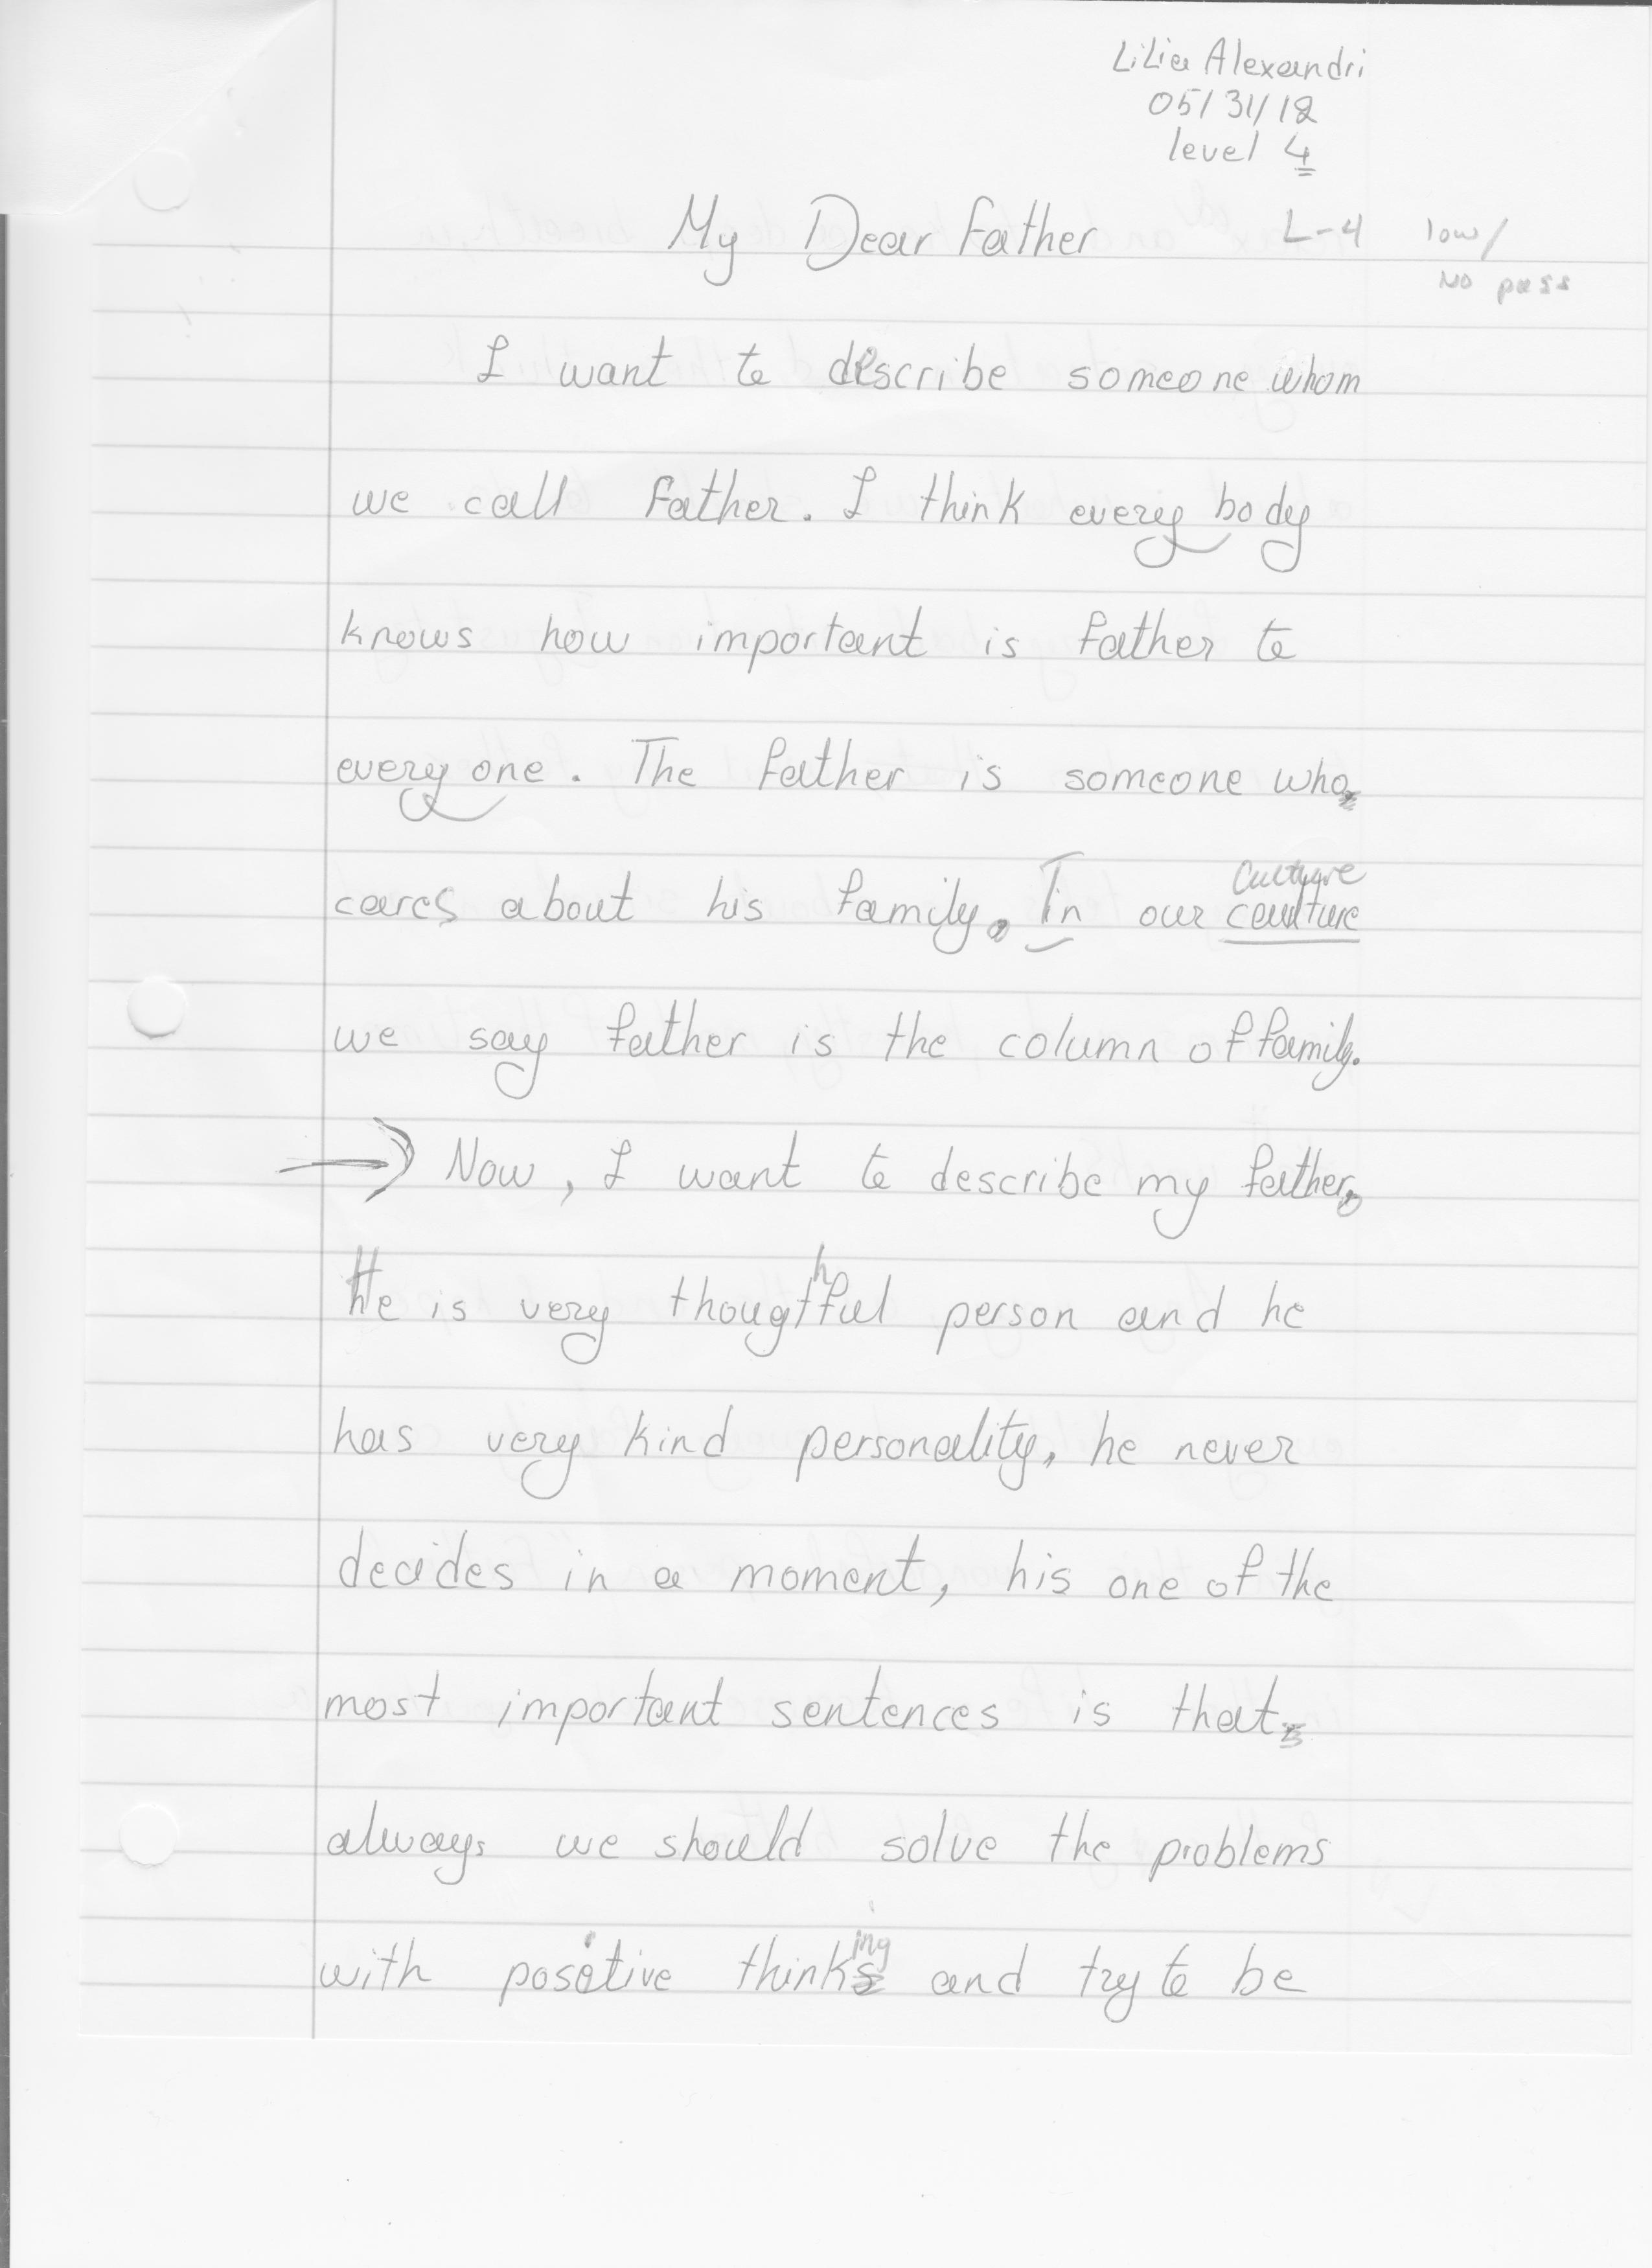 Lilia Alexandri
05/31/12
level 4
My Dear Father L-4 low/
No pass
I want to describe someone whom
we call Father. I think every body
knows how important is father to
every one. The father is someone who
cares about his family. In our couture
culture
we say father is the column of family.
→ Now, I want to describe my father.
He is very thougthful person and he
has very kind personality, he never
decides in a moment, his one of the
most important sentences is that
always we should solve the problems
with positive thinking and try to be